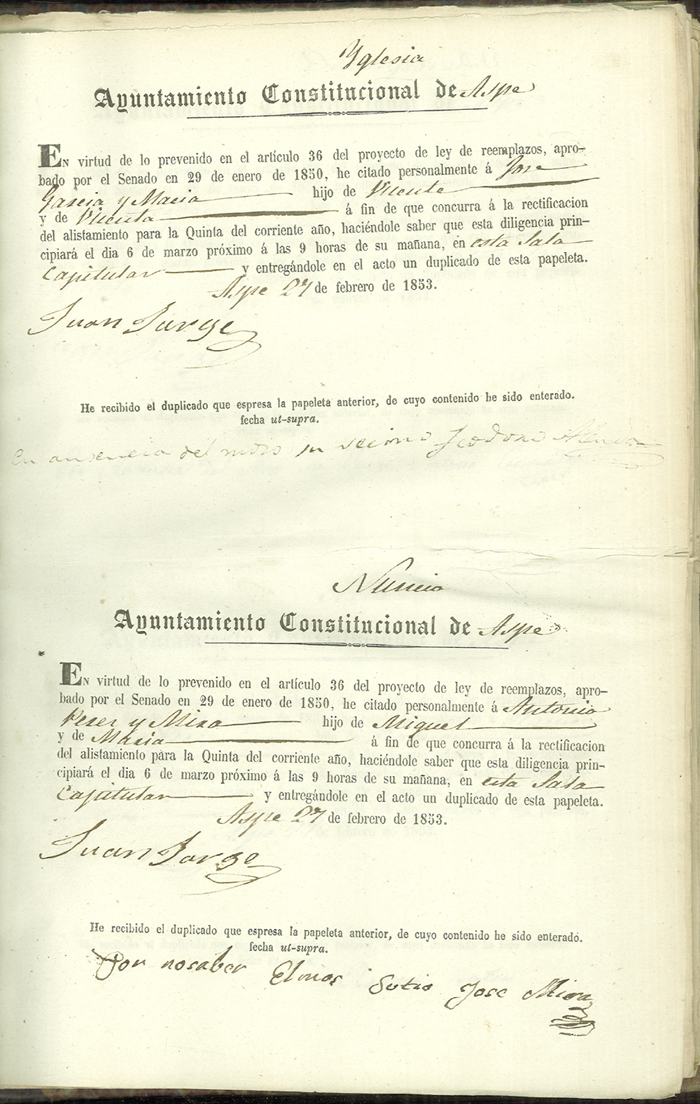 Yglesia
Ayuntamiento Constitucional de Aspe
EN virtud de lo prevenido en el artículo 36 del proyecto de ley de reemplazos, apro-
bado por el Senado en 29 de enero de 1850, he citado personalmente á Jose
Garcia y Macia hijo de Vicente
y de Vicenta á fin de que concurra á la rectificacion
del alistamiento para la Quinta del corriente año, haciéndole saber que esta diligencia prin-
cipiará el dia 6 de marzo próximo á las 9 horas de su mañana, en esta Sala
Capitular y entregándole en el acto un duplicado de esta papeleta.
Aspe 27 de febrero de 1853.
Juan Jorge
He recibido el duplicado que espresa la papeleta anterior, de cuyo contenido he sido enterado.
fecha ut-supra.
En ausencia del moso su vecino
Nuncio
Ayuntamiento Constitucional de Aspe
EN virtud de lo prevenido en el artículo 36 del proyecto de ley de reemplazos, apro-
bado por el Senado en 29 de enero de 1850, he citado personalmente á Antonio
Perez y Mira hijo de Miguel
y de Maria á fin de que concurra á la rectificacion
del alistamiento para la Quinta del corriente año, haciéndole saber que esta diligencia prin-
cipiará el dia 6 de marzo próximo á las 9 horas de su mañana, en esta Sala
Capitular y entregándole en el acto un duplicado de esta papeleta.
Aspe 27 de febrero de 1853.
Juan Jorge
He recibido el duplicado que espresa la papeleta anterior, de cuyo contenido he sido enterado.
fecha ut-supra.
Por nosaber Elmos Sutio Jose Mira